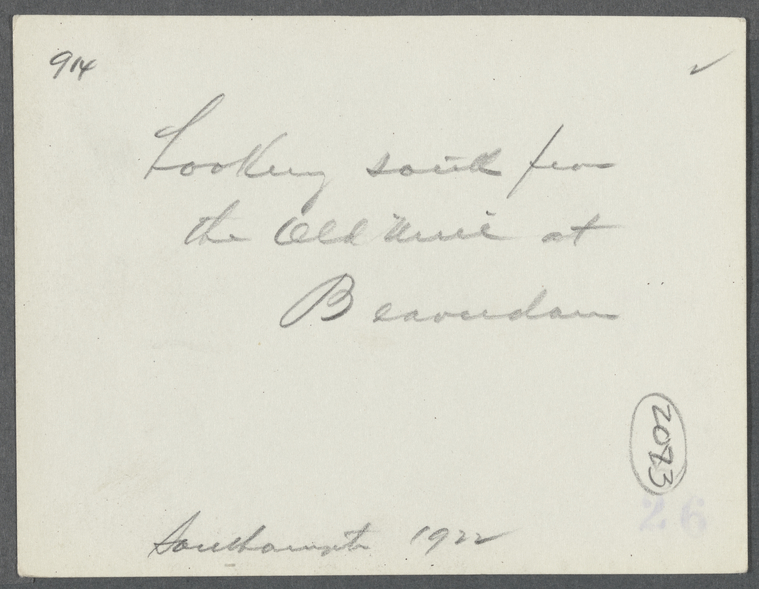 914 ✓
Looking south from
the Old Mill at
Beaverdam
2073
26
Southampton 1922